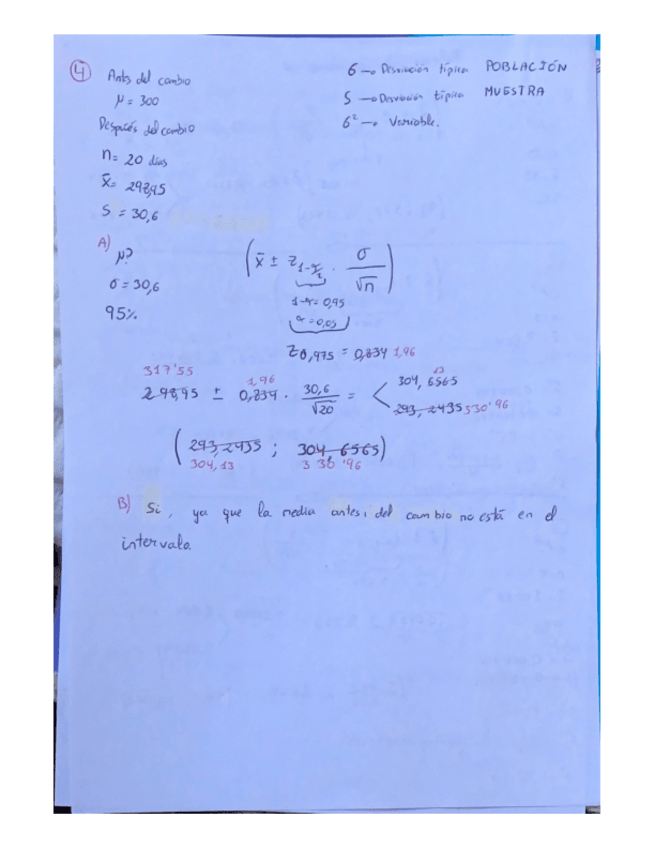 4
Antes del cambio
μ = 300
Después del cambio
n = 20 días
x̄ = 298,95
S = 30,6
6 → Desviación típica POBLACIÓN
S → Desviación típica MUESTRA
6² → Variable.
A) μ?
σ = 30,6
95%
(x̄ ± z₁₋α/₂ · σ/√n)
1-α = 0,95
α = 0,05
Z₀,₉₇₅ = 0,834 1,96
317'55 1,96
298,95 ± 0,834 · 30,6/√20 = <
13
304,6565
293,2435 330'96
(293,2435 ; 304,6565)
304,13 330'96
B) Si, ya que la media antes, del cambio no está en el
intervalo.